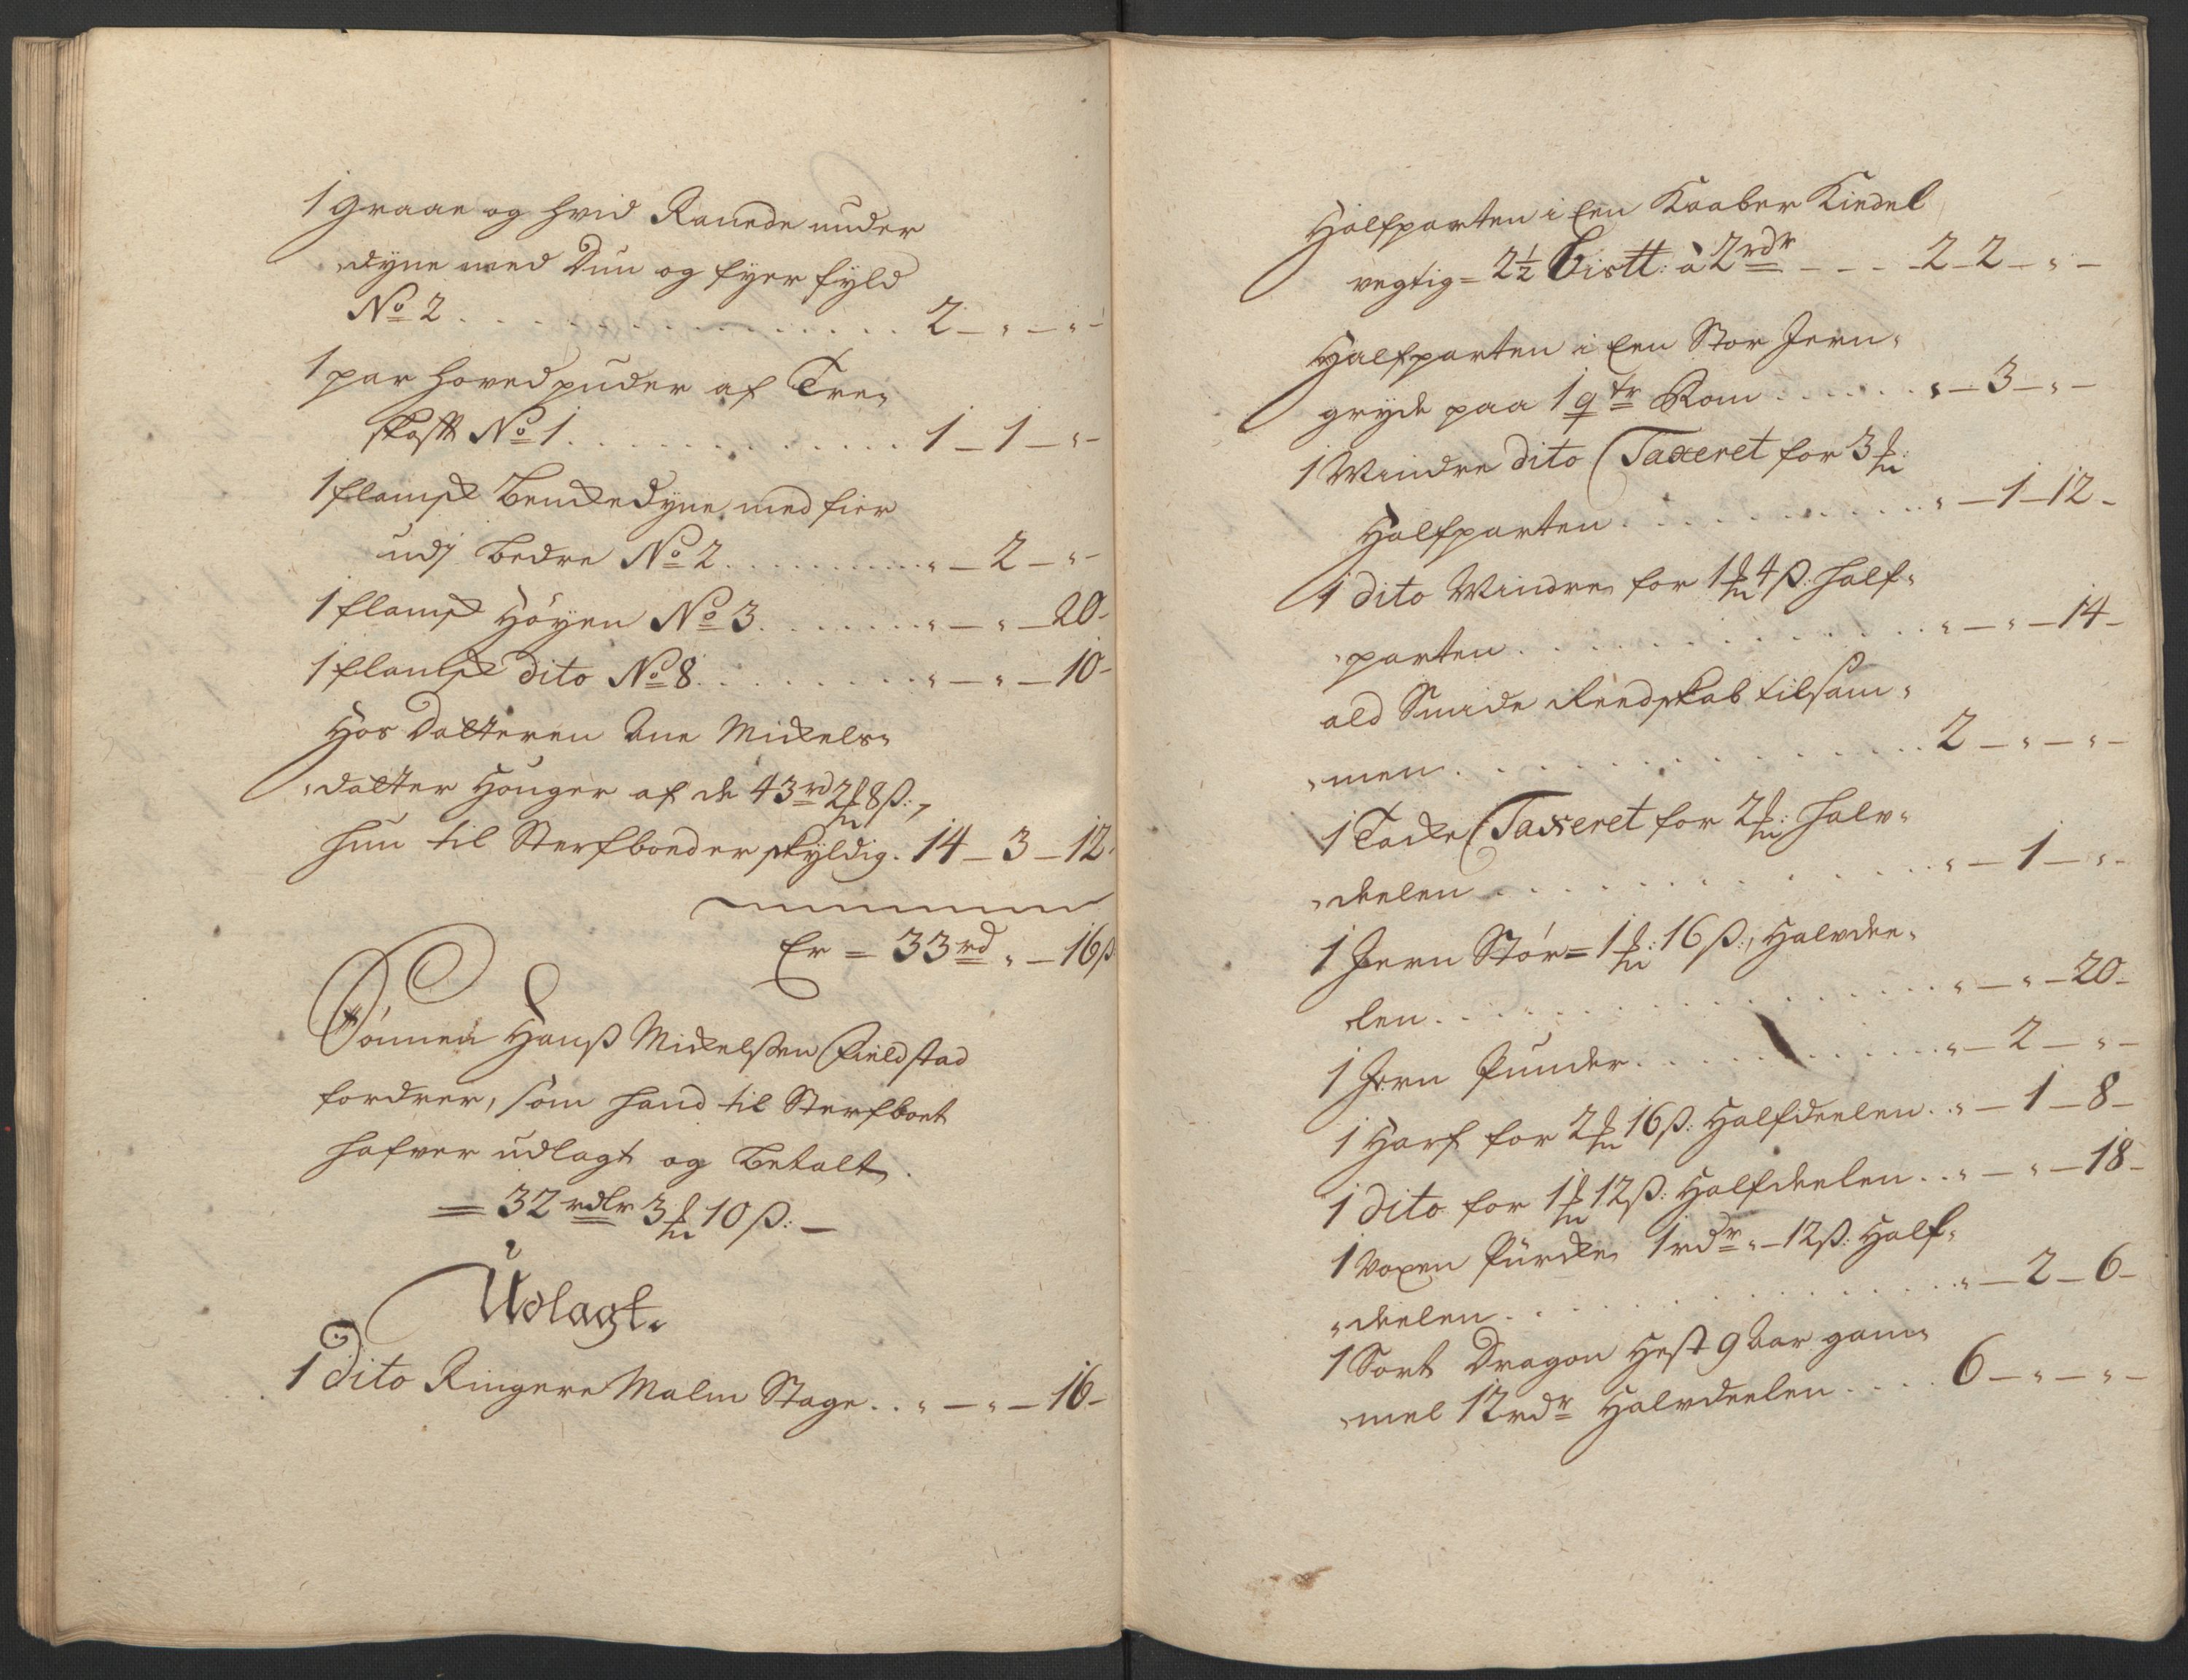 1 Graae og hvid Ranede under
dyne med Dun og fyer fyld
No 2 . . . . . 2 — " — " —
1 par hovedpuder af Tre-
skafft No 1 . . . . . 1 — 1 — " —
1 flamsk Benckedyne med fier
udj bedre No 2 . . . . . " — 2 — " —
1 flamsk Høyen No 3 . . . . . " — " — 20 -
1 flamsk dito No 8 . . . . . " — " — 10 -
Hos Datteren Ane Mickels-
datter Houger af de 43 rd 2 ß:
hun til Sterfboed er skyldig . 14 — 3 — 12
Er = 33 rd " — 16 ß
Sønnen Hanß Mickelßen Fieldstad
fordrer, som hand til Sterfboet
hafver udlagt og betalt.
= 32 rdlr 3 10 ß: —
Udlagt.
1 dito Ringere Malm Stage . . " — " — 16 -
Halfparten i Een Kaaber Kiedel
vegtig = 2½ Bismk: à 2 rdr — — — 2 — 2 — " —
Halfparten i Een Stor Jern-
gryde paa 1 qtr Rom . . . . . " — 3 — " —
1 Mindre dito Taxeret for 3
Halfparten . . . . . " — 1 — 12 -
1 dito Mindre, for 1 4 ß: half-
parten . . . . . " — " — 14 -
ald Smide Reedskab tilsam-
men . . . . . 2 — " — " —
1 Tacke Taxeret for 2: halv-
deelen . . . . . " — 1 — " —
1 Jern Stør = 1: 16 ß:, Halvdee-
len . . . . . " — " — 20 -
1 Jern Punder . . . . . " — 2 — " —
1 Harf for 2 16 ß: Halfdeelen . . " — 1 — 8 -
1 dito for 1 12 ß: Halfdeelen . . " — " — 18 -
1 Voxen Pürcke, 1 rdr " — 12 ß: Half-
deelen . . . . . " — 2 — 6 -
1 Sort Dragon Hest 9 Aar gam-
mel 12 rdr Halvdeelen . . . . 6 — " — " —